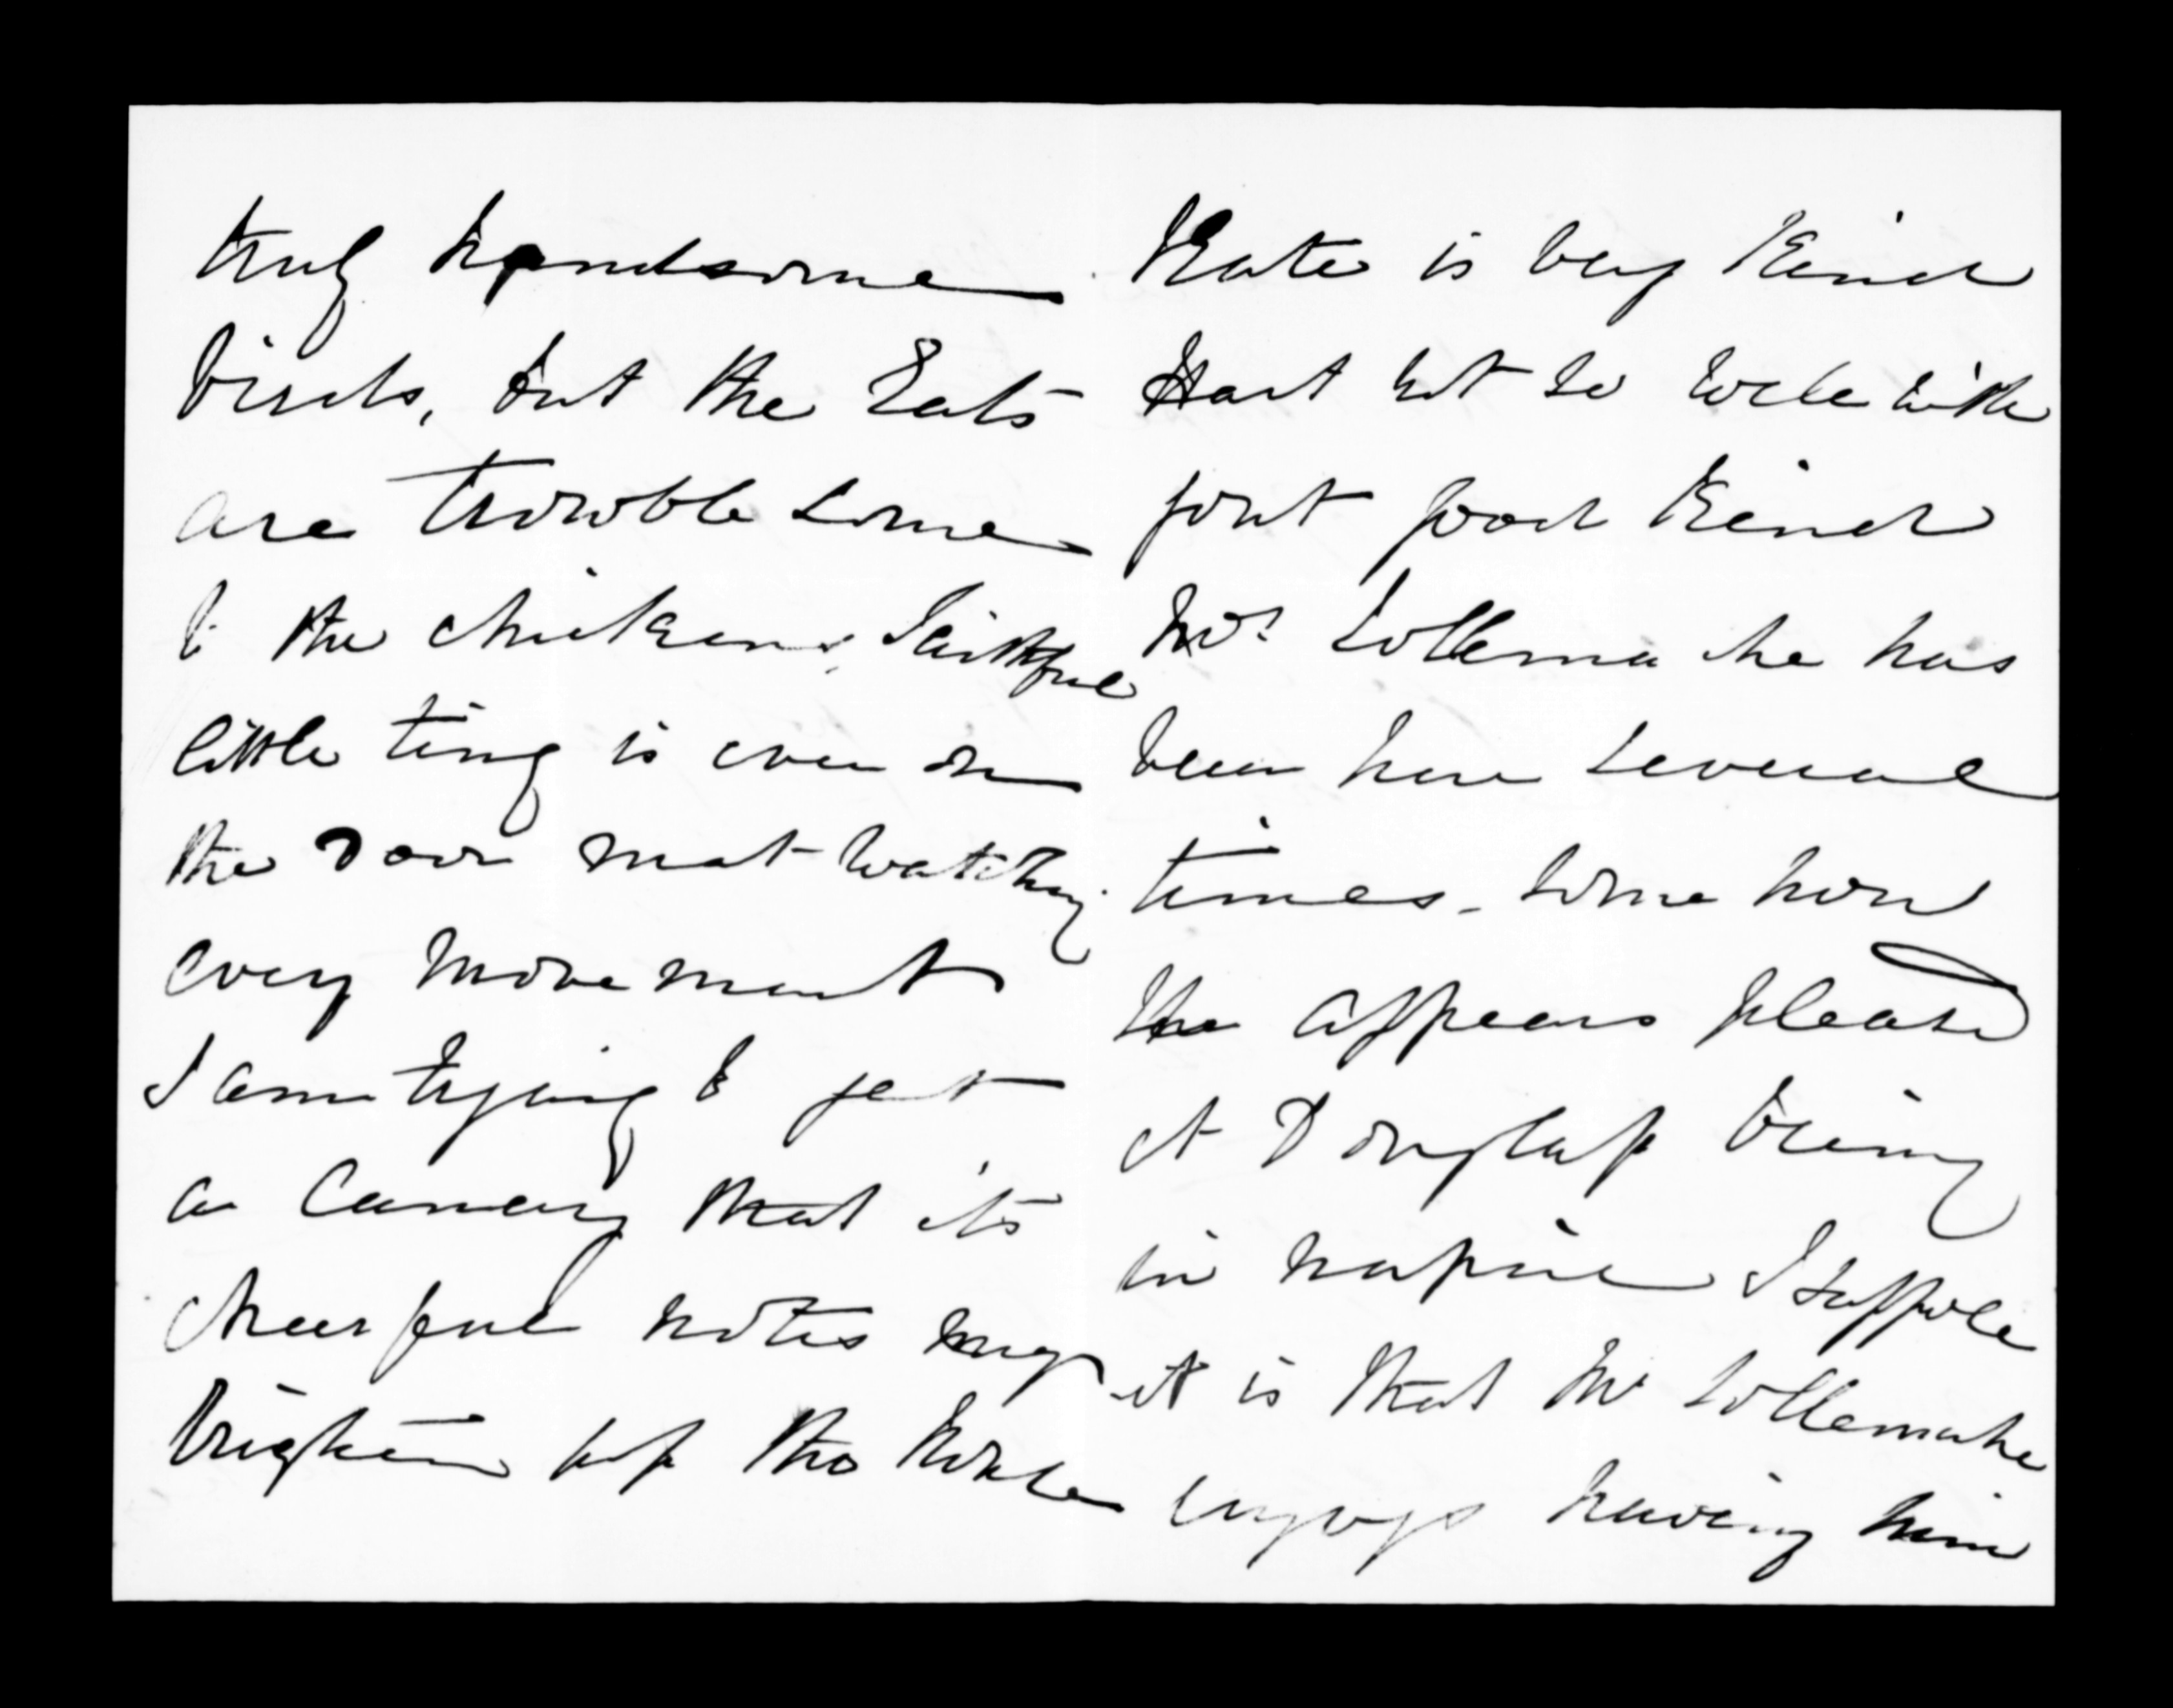 truly handsome
birds, but the Cats
are trowoble some
to the chickens, Faithful
little ting is ever on
the Door mat watching
every movement
I am trying to get
a Canary that its
cheerful notes may
brighten up the House
Kate is very kind
Hart not so well with
gout good kind
Mrs Tollemache has
been here several
times - some how
she appears pleased
at Douglass being
in napier I suppose
it is that Mr Tollemache
enjoys having him